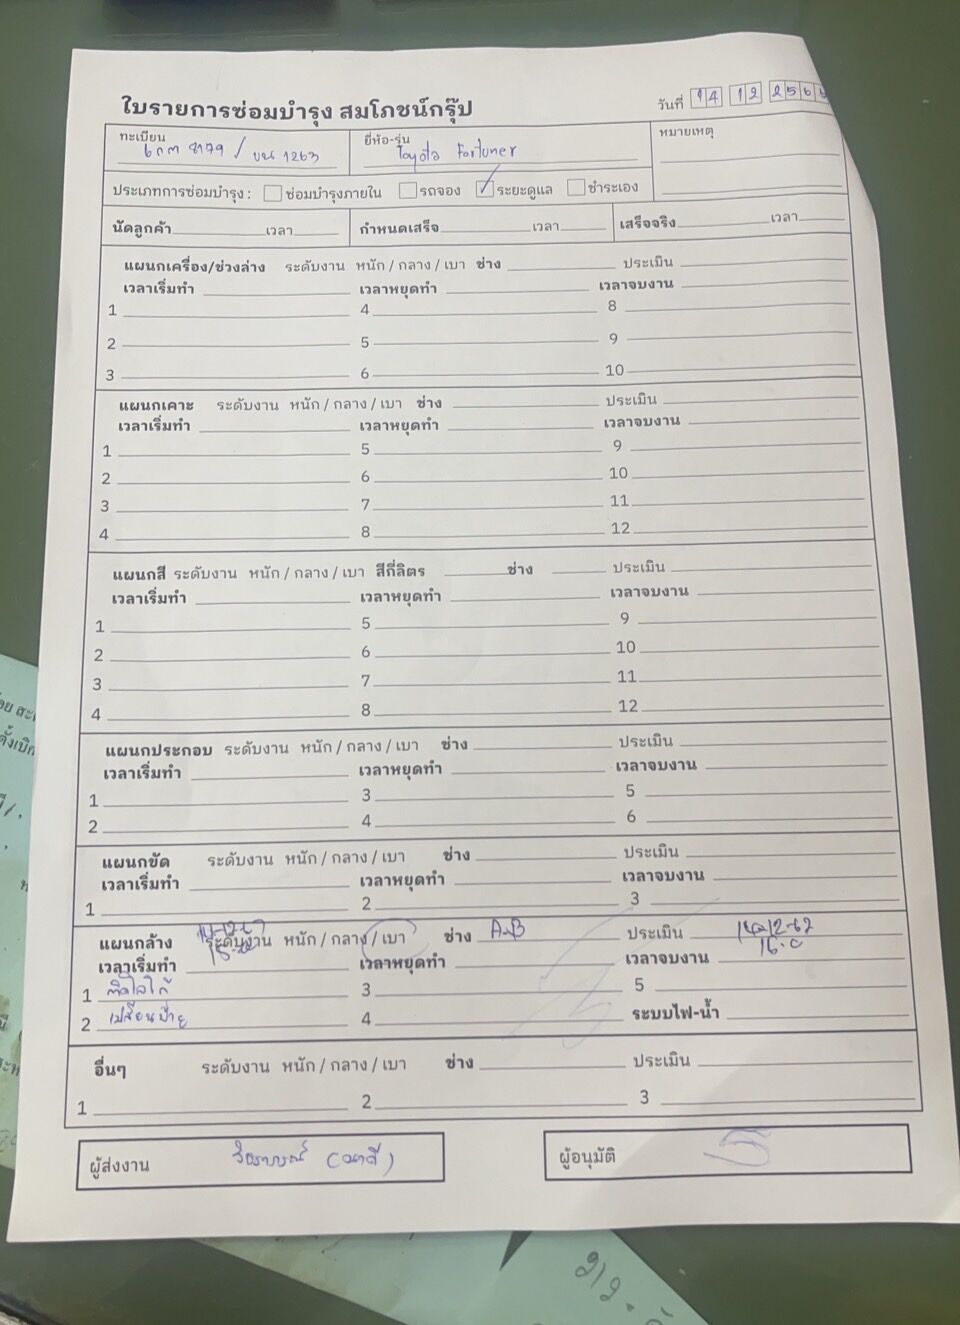 ใบรายการซ่อมบำรุง สมโภชน์กรุ๊ป
วันที่ 14 12 256
ทะเบียน 6กก 8179 / บน 1263
ยี่ห้อ-รุ่น Toyota Fortuner
หมายเหตุ
ประเภทการซ่อมบำรุง : ซ่อมบำรุงภายใน รถจอง ระยะดูแล ชำระเอง
นัดลูกค้า เวลา กำหนดเสร็จ เวลา เสร็จจริง เวลา
แผนกเครื่อง/ช่วงล่าง ระดับงาน หนัก / กลาง / เบา ช่าง ประเมิน
เวลาเริ่มทำ เวลาหยุดทำ เวลาจบงาน
1 4 8
2 5 9
3 6 10
แผนกเคาะ ระดับงาน หนัก / กลาง / เบา ช่าง ประเมิน
เวลาเริ่มทำ เวลาหยุดทำ เวลาจบงาน
1 5 9
2 6 10
3 7 11
4 8 12
แผนกสี ระดับงาน หนัก / กลาง / เบา สีกี่ลิตร ช่าง ประเมิน
เวลาเริ่มทำ เวลาหยุดทำ เวลาจบงาน
1 5 9
2 6 10
3 7 11
4 8 12
แผนกประกอบ ระดับงาน หนัก / กลาง / เบา ช่าง ประเมิน
เวลาเริ่มทำ เวลาหยุดทำ เวลาจบงาน
1 3 5
2 4 6
แผนกขัด ระดับงาน หนัก / กลาง / เบา ช่าง ประเมิน
เวลาเริ่มทำ เวลาหยุดทำ เวลาจบงาน
1 2 3
แผนกล้าง ระดับงาน หนัก / กลาง / เบา ช่าง A-B ประเมิน 14-12-67
เวลาเริ่มทำ เวลาหยุดทำ เวลาจบงาน
1 3 5
2 เปลี่ยนป้าย 4 ระบบไฟ-น้ำ
อื่นๆ ระดับงาน หนัก / กลาง / เบา ช่าง ประเมิน
1 2 3
ผู้ส่งงาน
ผู้อนุมัติ